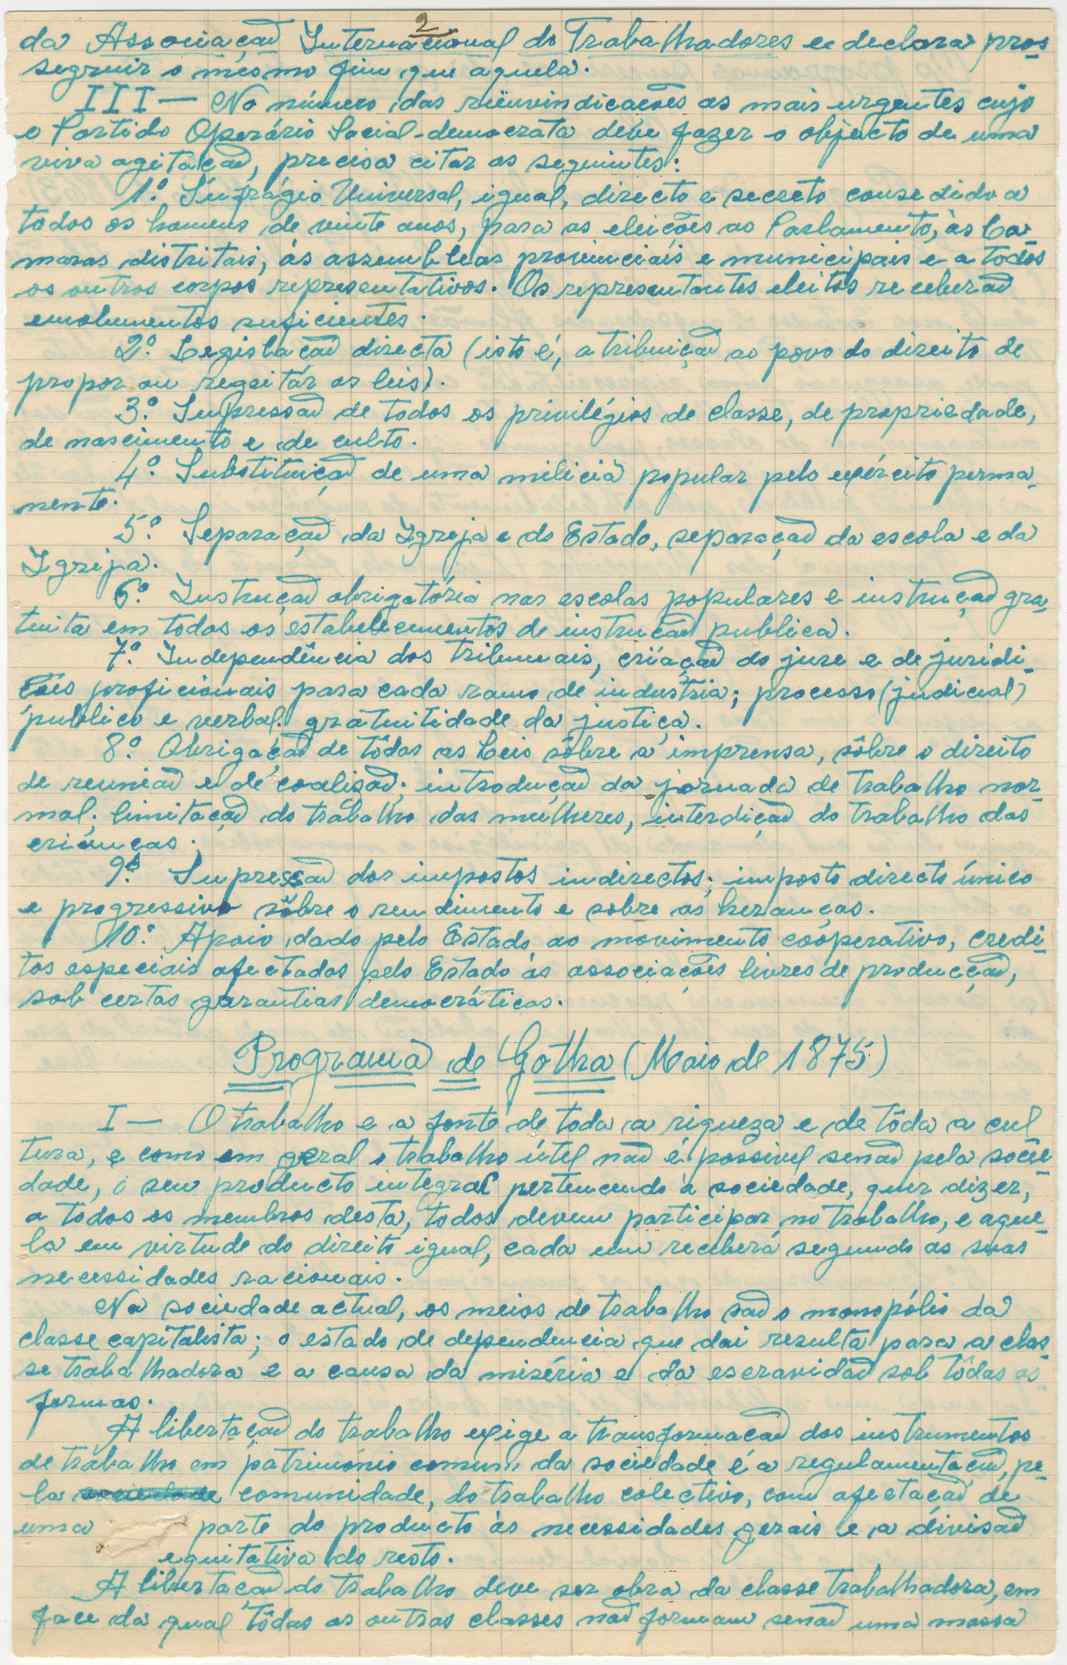 2
da Associação Internacional do Trabalhadores e declara pros-
seguir o mesmo fim que aquela.
III — No número das riënvindicações as mais urgentes cujo
o Partido Operário Social-democrata deve fazer o objecto de uma
viva agitação, precisa citar as seguintes:
1.º Sufrágio Universal, igual, directo e secreto consedido a
todos os homens de vinte anos, para as eleições ao Parlamento, às Ca
maras distritais, ás assembleas provinciáis e municipais e a todos
os outros corpos representativos. Os representantes eleitos receberão
emolumentos suficientes.
2.º Legislação directa (isto é, atribuição ao povo do direito de
propor ou regeitár as leis).
3.º Supressão de todos os privilégios de classe, de propriedade,
de nascimento e de culto.
4.º Substituição de uma milicia popular pelo exército perma-
nente.
5.º Separação da Igreja e do Estado, separação da escola e da
Igreja.
6.º Instrução obrigatória nas escolas populares e instrução gra-
tuita em todos os estabelecimentos de instrução publica.
7.º Independência dos tribunais, criação do jure e de juridi-
ções proficionais para cada ramo de industria; processo (judicial)
publico e verbal. gratuitidade da justiça.
8.º Obrigação de tôdas as Leis sôbre a imprensa, sôbre o direito
de reunião e de coalisão; introdução da jornada de trabalho nor-
mal; limitação do trabalho das mulheres, interdição do trabalho das
crianças.
9.º Supressão dos impostos indirectos; imposto directo único
e progressivo sôbre o rendimento e sobre as heranças.
10.º Apoio dado pelo Estado ao movimento coóperativo, credi-
tos especiais afectados pelo Estado ás associações livres de producção,
sob certas garantias democráticas.
Programa de Gotha (Maio de 1875)
I — O trabalho e a fonte de toda a riqueza e de tôda a cul
tura, e como em geral o trabalho útel não é possivel senão pela socie-
dade, o seu producto integral pertencendo á sociedade, quer dizer,
a todos os membros desta, todos devem participar no trabalho, e aque-
la em virtude do direito igual, cada um receberá segundo as suas
necessidades racionais.
Na sociedade actual, os meios de trabalho são o monopólio da
classe capitalista; o estado de dependencia que dai resulta para a clas-
se trabalhadora é a causa da miséria e da escravidão sob tôdas as
formas.
A libertação do trabalho exige a transformação dos instrumentos
de trabalho em património comum da sociedade é a regulamentação, pe-
la sociedade comunidade, do trabalho colectivo, com afectação de
uma parte do producto ás necessidades gerais e a divisão
equitativa do resto.
A libertação do trabalho deve ser obra da classe trabalhadora, em
face da qual tôdas as outras classes não formam senão uma massa